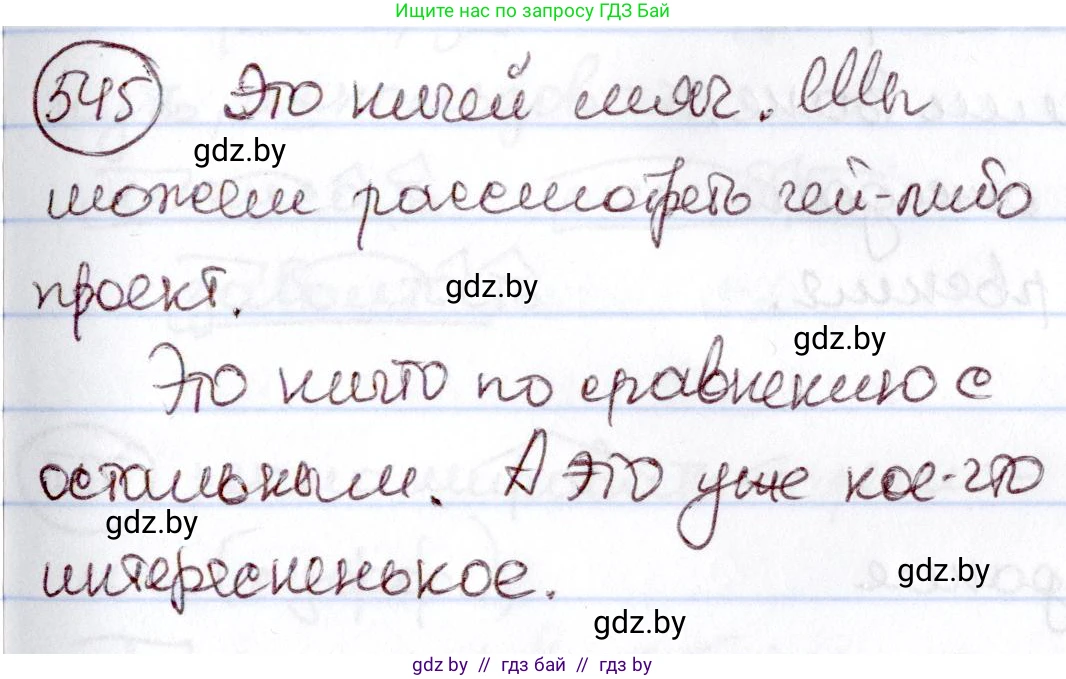 Ищите нас по запросу ГДЗ Бай
545 Это ничей мяч. Мы
gdz.by
можем рассмотреть чей-либо
проект.
gdz.by
gdz.by
Это ничто по сравнению с
остальным. А это уже кое-что
gdz.by
интересненькое.
gdz.by
gdz.by
gdz by // гдз бай // gdz by